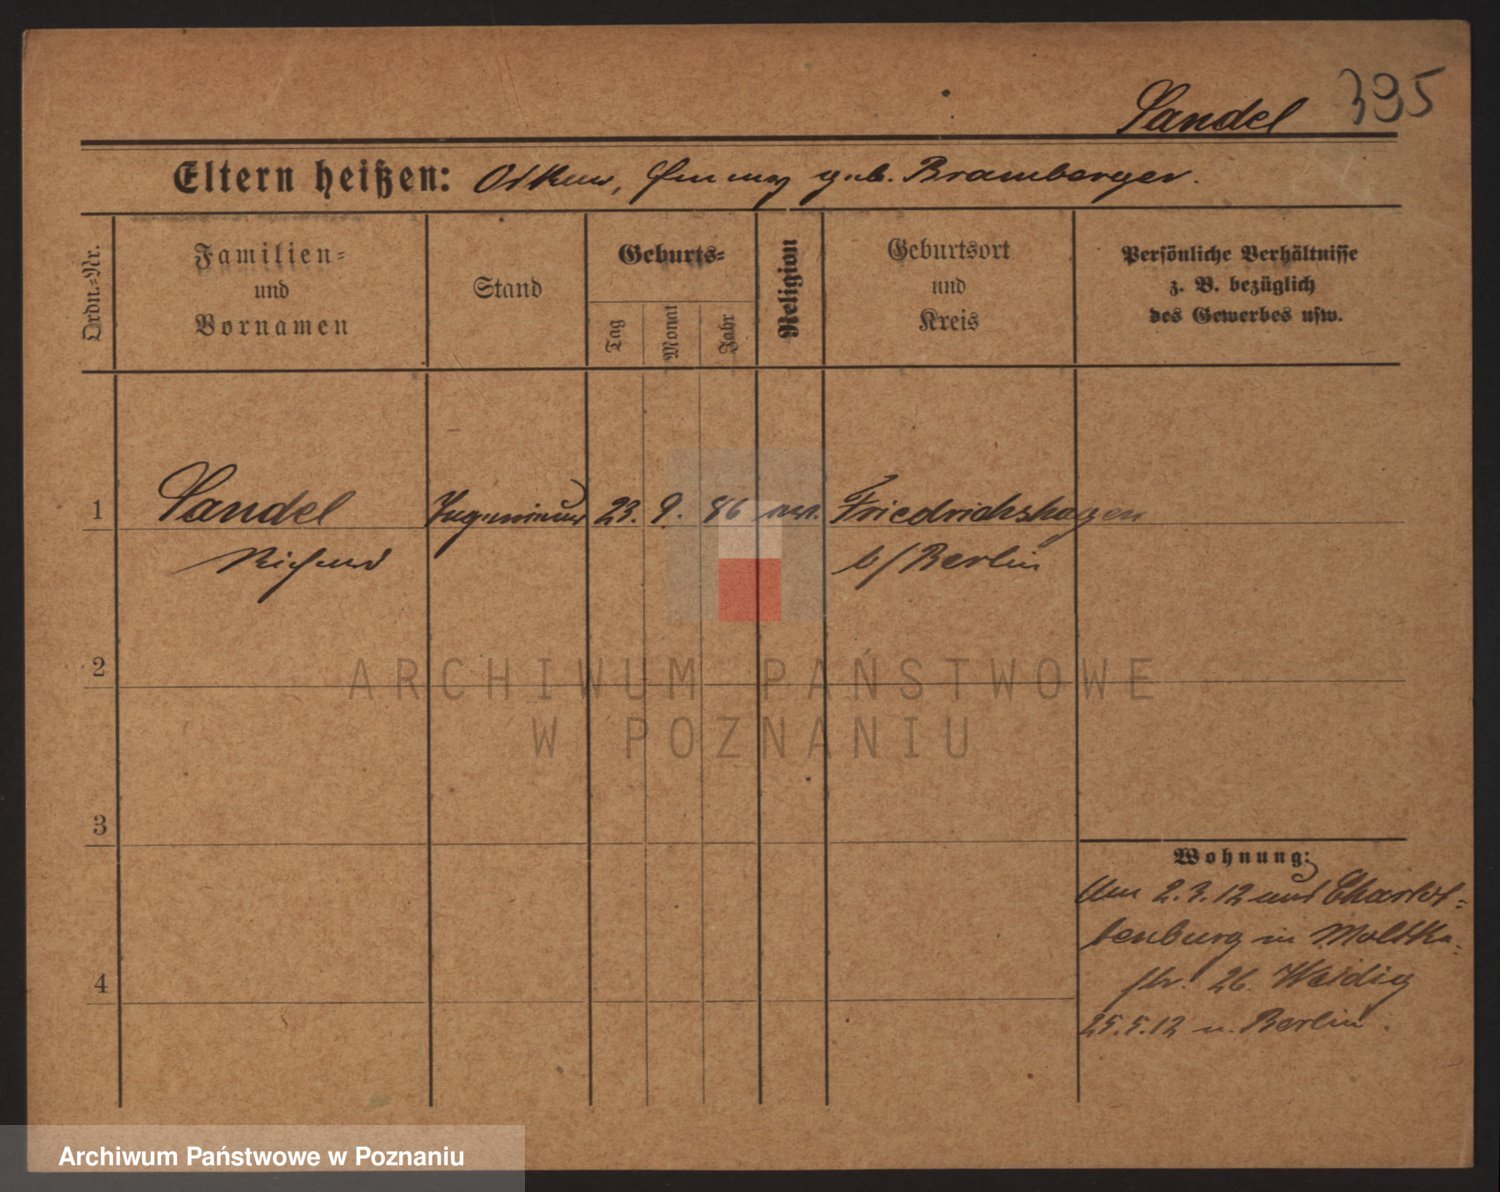 Sandel 395
Eltern heißen: Oskar, Fanny geb. Bramberger.
Ordn.-Nr.
Familien-
und
Vornamen
Stand
Geburts-
Tag
Monat
Jahr
Religion
Geburtsort
und
Kreis
Persönliche Verhältnisse
z. B. bezüglich
des Gewerbes usw.
1 Sandel Ingenieur 23. 9. 86 Friedrichshagen
Richard b/Berlin
2
3
4
Wohnung:
2.3.12 Charlot-
tenburg in Moltke-
str. 26. Weidig
25.5.12 n. Berlin.
ARCHIWUM PAŃSTWOWE
W POZNANIU
Archiwum Państwowe w Poznaniu